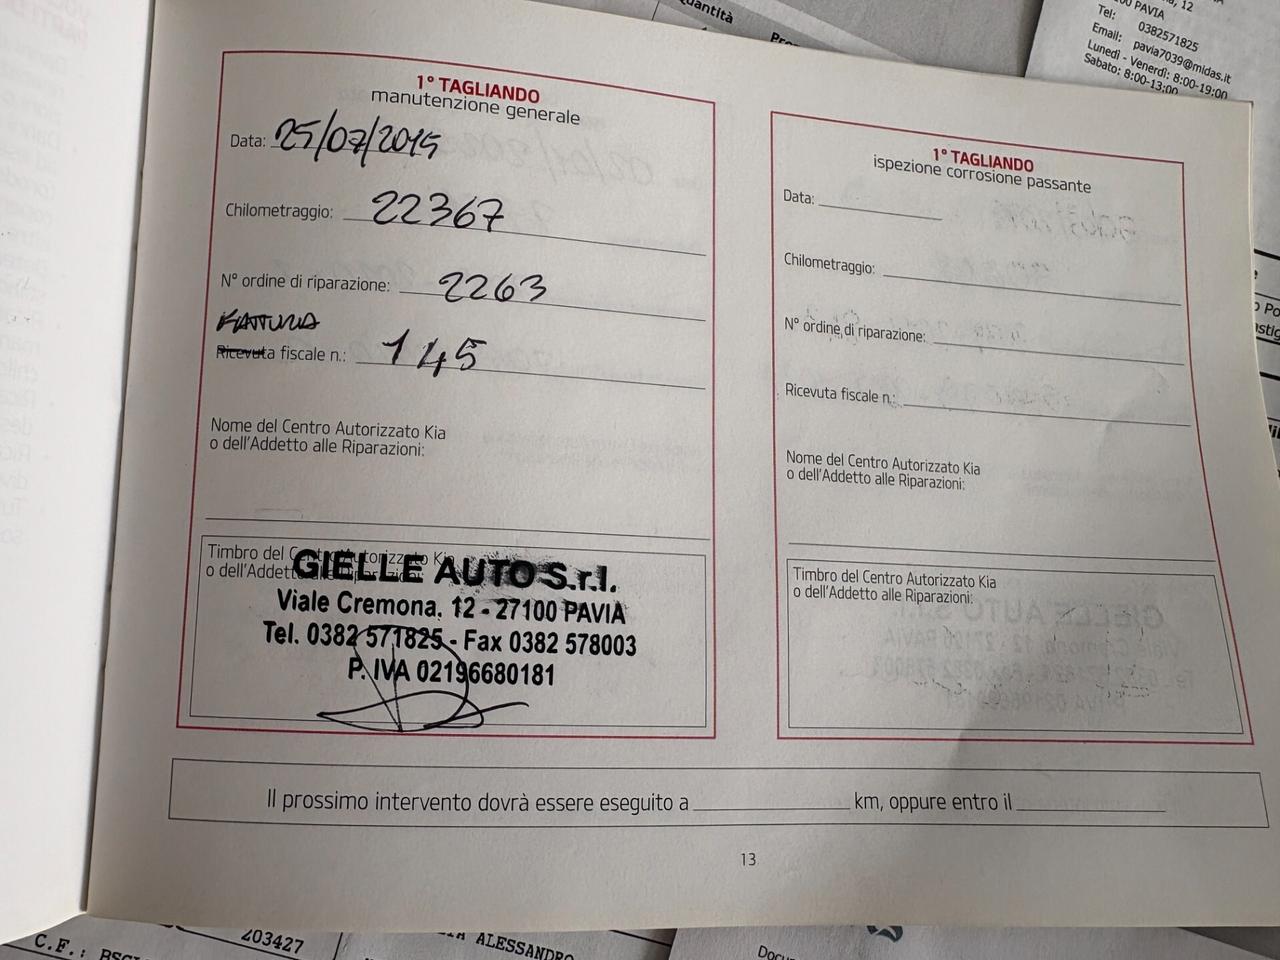 1° TAGLIANDO
manutenzione generale
Data: 25/07/2015
Chilometraggio: 22367
N° ordine di riparazione: 2263
FATTURA
Ricevuta fiscale n.: 145
Nome del Centro Autorizzato Kia
o dell'Addetto alle Riparazioni:
Timbro del Centro Autorizzato Kia
o dell'Addetto alle Riparazioni:
GIELLE AUTO S.r.l.
Viale Cremona, 12 - 27100 PAVIA
Tel. 0382 571825 - Fax 0382 578003
P. IVA 02196680181
1° TAGLIANDO
ispezione corrosione passante
Data:
Chilometraggio:
N° ordine di riparazione:
Ricevuta fiscale n.:
Nome del Centro Autorizzato Kia
o dell'Addetto alle Riparazioni:
Timbro del Centro Autorizzato Kia
o dell'Addetto alle Riparazioni:
Il prossimo intervento dovrà essere eseguito a km, oppure entro il
13
Quantità
12
PAVIA
Tel: 0382571825
Email: pavia7039@midas.it
Lunedì - Venerdì: 8:00-19:00
Sabato: 8:00-13:00
203427
C.F.:
ALESSANDRO